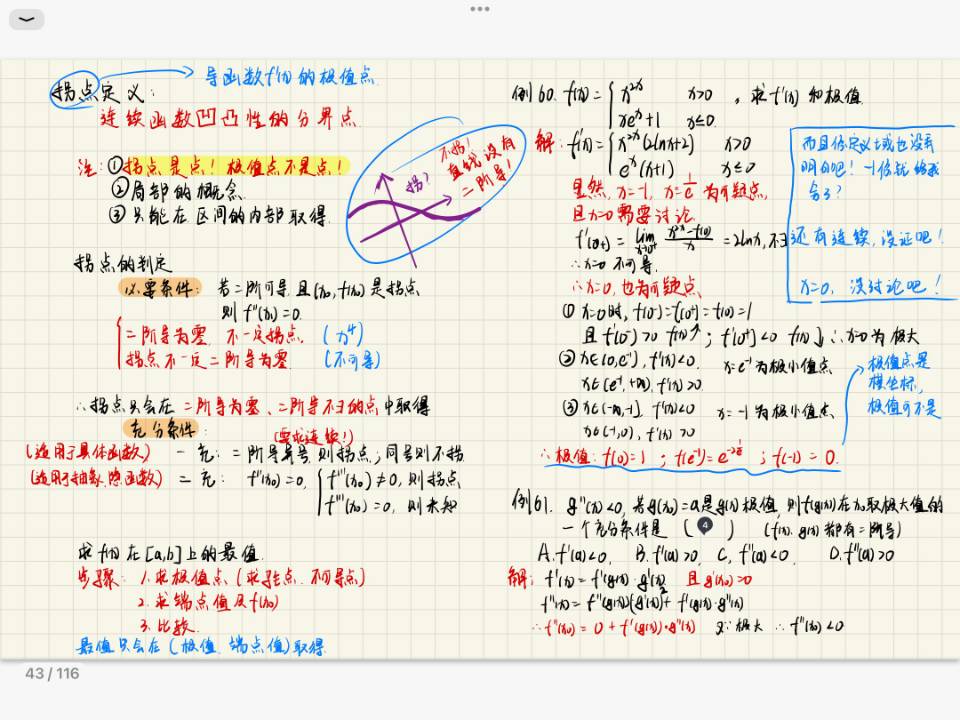 拐点定义：
导函数f'(x)的极值点
连续函数凹凸性的分界点
注：①拐点是点！极值点不是点！
②局部的概念
③只能在区间的内部取得
拐？
不拐！
直线没有
二阶导！
拐点的判定
必要条件：若二阶可导，且(x₀, f(x₀))是拐点
则f''(x₀)=0
二阶导为零，不一定拐点 (x⁴)
拐点不一定二阶导为零 (不可导)
∴拐点只会在二阶导为零、二阶导不∃的点中取得
充分条件：
(要求连续!)
(适用于具体函数) 一充：二阶导异号，则拐点；同号则不拐
(适用于抽象、隐函数) 二充：f''(x₀)=0, { f'''(x₀)≠0, 则拐点
f'''(x₀)=0, 则未知
求f(x)在[a,b]上的最值
步骤：1.求极值点(求驻点、不可导点)
2.求端点值及f(x₀)
3.比较
最值只会在(极值、端点值)取得
例60. f(x)= { x²ˣ x>0 , 求f'(x)和极值
xeˣ+1 x≤0
解：f'(x)= { x²ˣ(2lnx+2) x>0
eˣ(x+1) x≤0
显然, x=-1, x=1/e 为可疑点,
且x=0需要讨论
f'(0+)= lim x→0⁺ (x²ˣ-f(0))/x =2lnx, 不∃
∴x=0不可导
∴x=0, 也为可疑点
①x=0时, f(0⁻)=f(0⁺)=f(0)=1
且f'(0⁻)>0 f(x)↑; f'(0⁺)<0 f(x)↓, ∴x=0为极大
②x∈(0,e⁻¹), f'(x)<0
x=e⁻¹为极小值点
x∈(e⁻¹,+∞), f'(x)>0
③x∈(-∞,-1), f'(x)<0 x=-1为极小值点
x∈(-1,0), f'(x)>0
∴极值：f(0)=1 ; f(e⁻¹)=e^(-2/e) ; f(-1)=0
而且你定义域也没写
明白吧！
还有连续，没证吧！
x=0, 没讨论吧！
极值点是
横坐标,
极值可不是
例61. g''(x)<0, 若g(x₀)=a是g(x)极值, 则f(g(x))在x₀取极大值的
一个充分条件是 ( 4 ) (f(x), g(x)都有二阶导)
A. f'(a)<0 B. f'(a)>0 C. f''(a)<0 D. f''(a)>0
解：f'(x)=f'(g(x))·g'(x) 且g'(x₀)=0
f''(x)=f''(g(x))(g'(x))²+f'(g(x))·g''(x)
∴f''(x₀)=0+f'(g(x))·g''(x) 又∵极大 ∴f''(x₀)<0
43 / 116